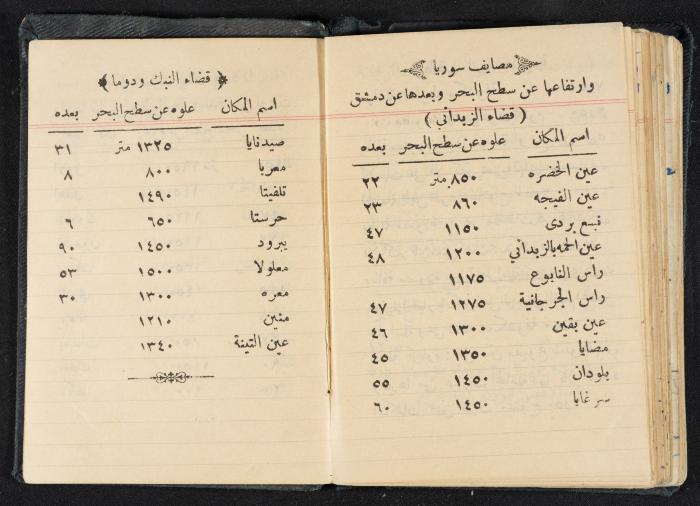 مصايف سوريا
وارتفاعها عن سطح البحر وبعدها عن دمشق
( قضاء الزبداني )
اسم المكان علوه عن سطح البحر بعده
عين الخضره ٨٥٠ متر ٢٢
عين الفيجه ٨٦٠ ٢٣
نبع بردى ١١٥٠ ٤٧
عين الحمه بالزبداني ١٢٠٠ ٤٨
راس النابوع ١١٧٥
راس الجرجانية ١٢٧٥ ٤٧
عين بقين ١٣٠٠ ٤٦
مضايا ١٣٥٠ ٤٥
بلودان ١٤٥٠ ٥٥
سرغايا ١٤٥٠ ٦٠
قضاء النبك ودوما
اسم المكان علوه عن سطح البحر بعده
صيدنايا ١٣٢٥ متر ٣١
معربا ٨٠٠ ٨
تلفيتا ١٤٩٠
حرستا ٦٥٠ ٦
يبرود ١٤٥٠ ٩٠
معلولا ١٥٠٠ ٥٣
معره ١٣٠٠ ٣٠
منين ١٢١٠
عين التينة ١٣٤٠